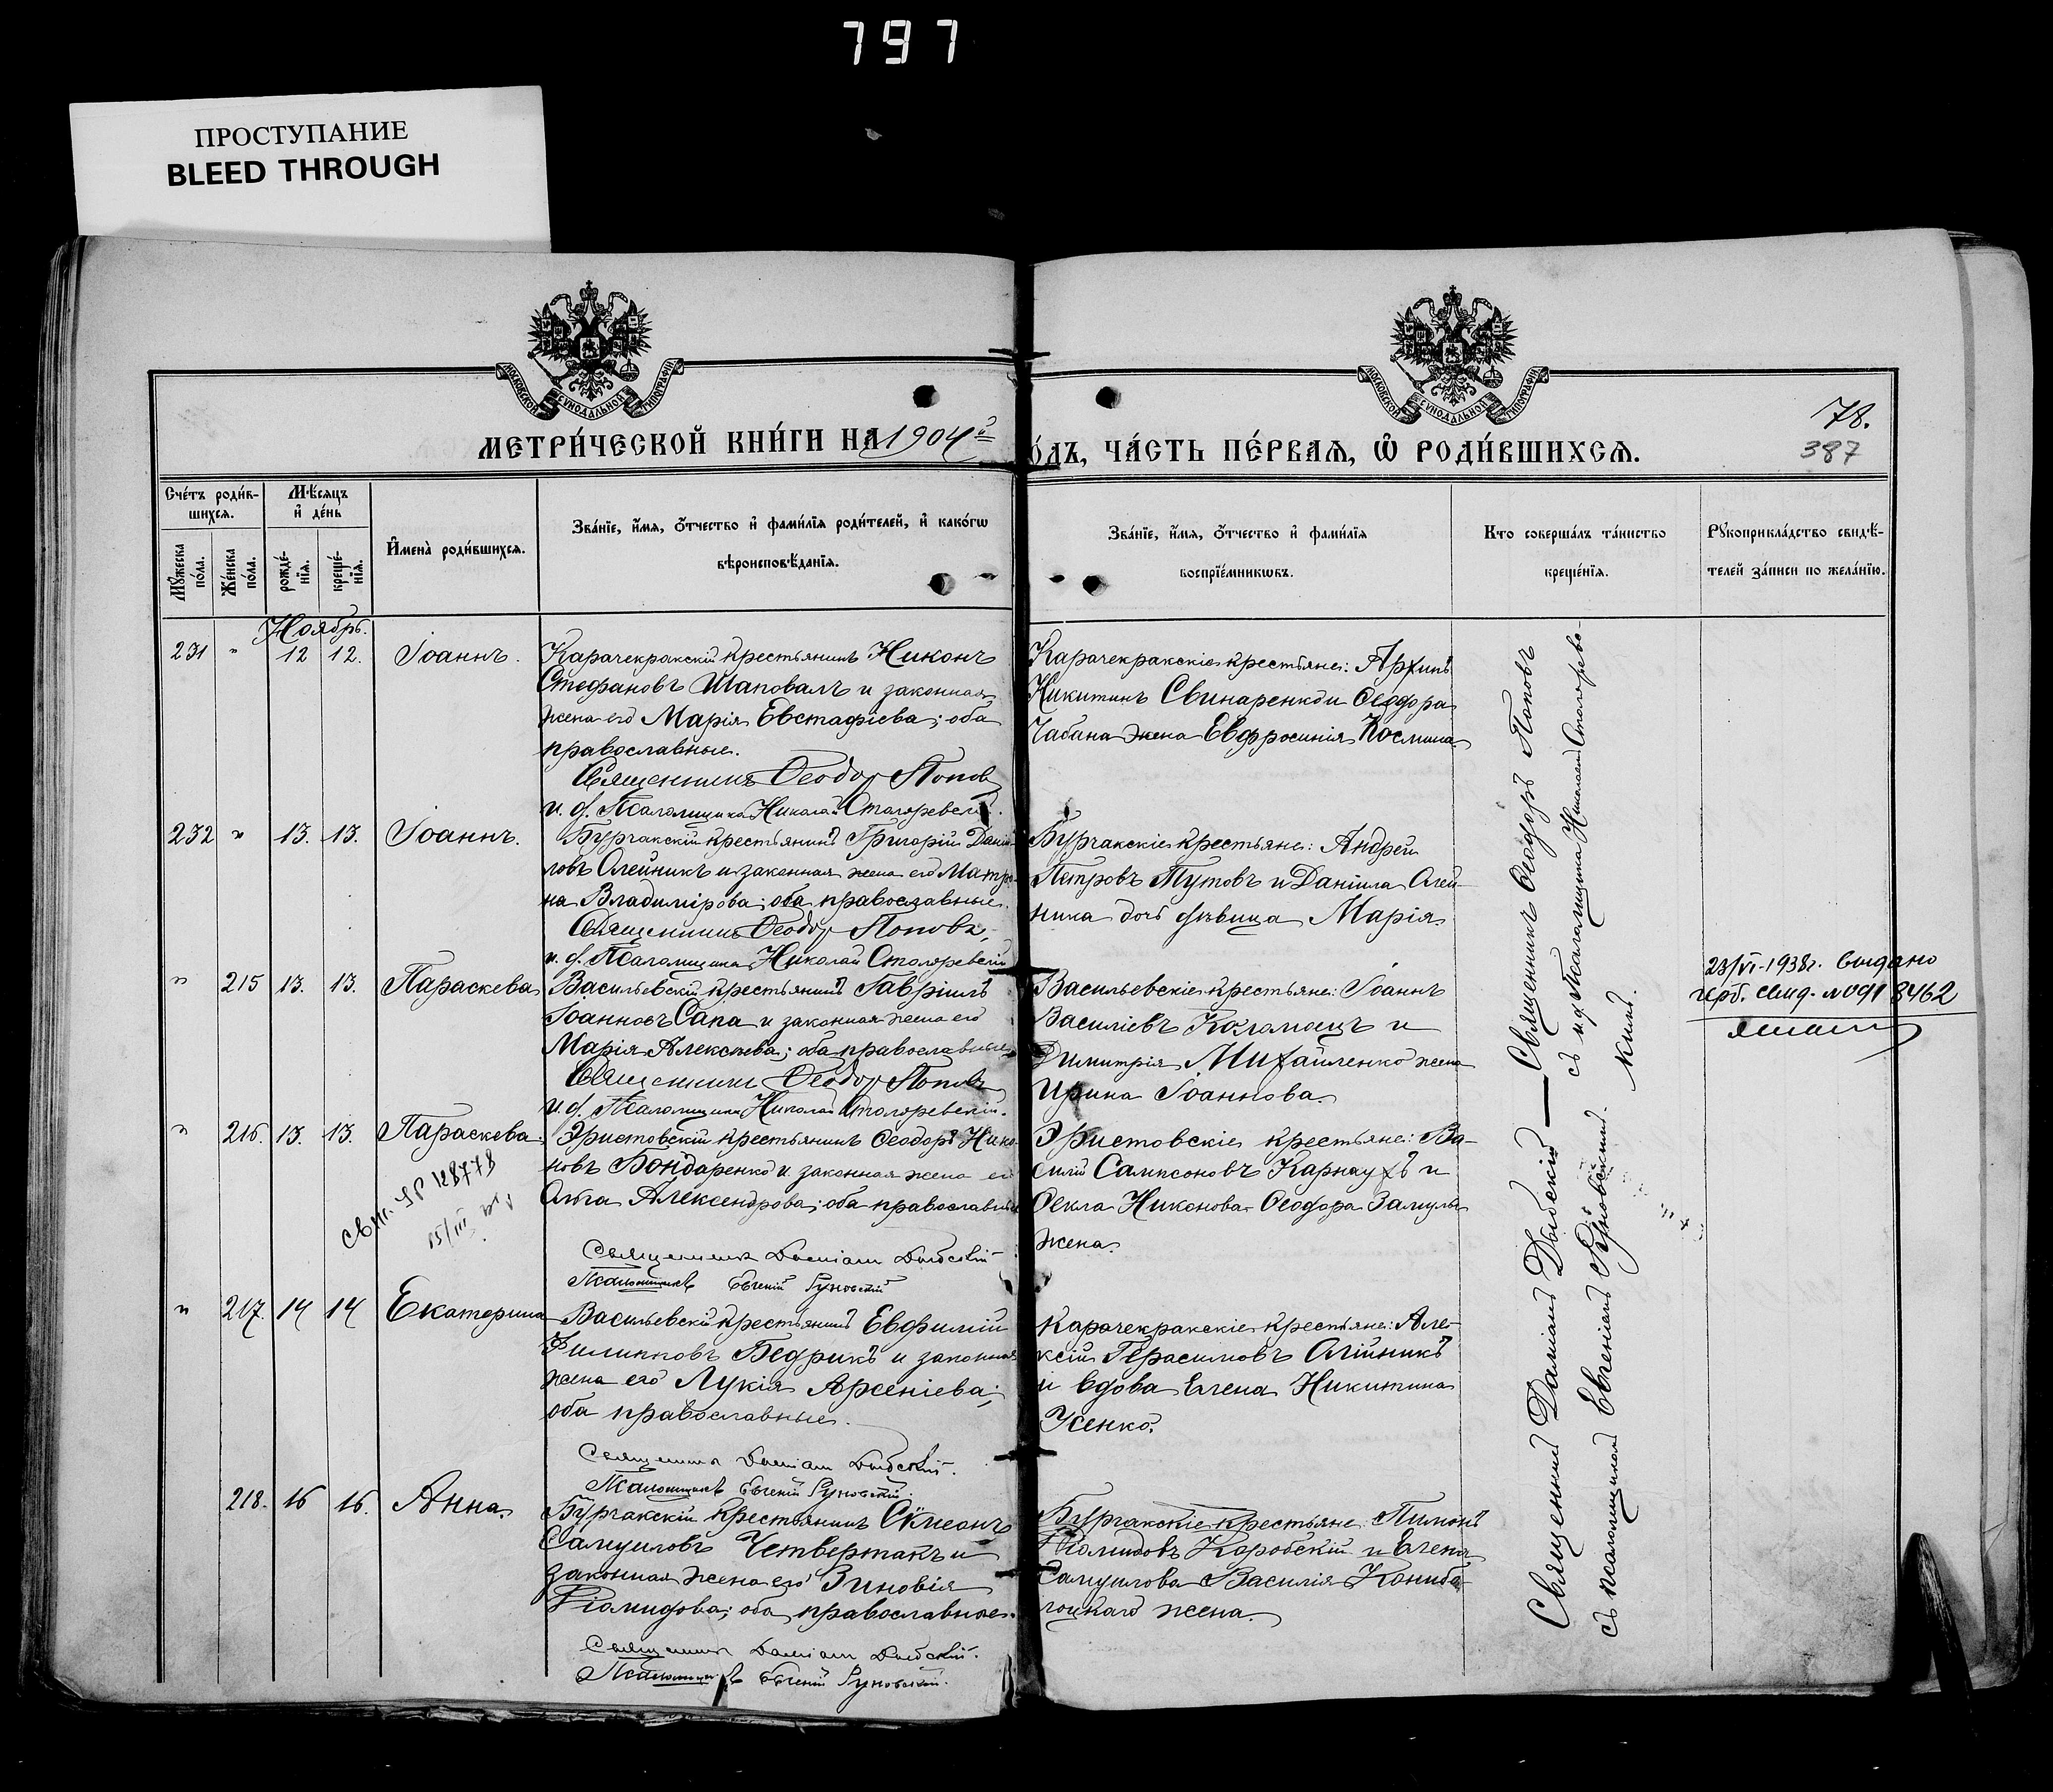 797
ПРОСТУПАНИЕ
BLEED THROUGH
МОСКОВСКОЙ СѴНОДАЛЬНОЙ ТИПОГРАФІИ
МОСКОВСКОЙ СѴНОДАЛЬНОЙ ТИПОГРАФІИ
78.
387
МЕТРИ́ЧЕСКОЙ КНИ́ГИ НА 1904й
О́ДЪ, ЧА́СТЬ ПЕ́РВАЯ, Ѽ РОДИ́ВШИХСЯ.
Сче́тъ роди́в-
шихся.
Мѣ́сяцъ
и҆ де́нь
Мꙋ́жеска
по́ла.
Же́нска
по́ла.
рожде́-
нїя.
креще́-
нїя.
И҆мена̀ роди́вшихся.
Зва́нїе, и҆́мя, ѻ҆́тчество и҆ фами́лїя роди́телей, и҆ како́гѡ
вѣроисповѣ́данїя.
Зва́нїе, и҆́мя, ѻ҆́тчество и҆ фами́лїя
воспрїе́мникѡвъ.
Кто соверша́лъ та́инство
креще́нїя.
Рꙋкоприкла́дство свидѣ́-
телей за́писи по жела́нїю.
Ноябрь.
231 " 12 12. Іоаннъ.
Карачекракскій крестьянинъ Никонъ
Стефановъ Шаповалъ и законная
жена его Марія Евстафіева; оба
православные.
Священникъ Ѳеодоръ Поповъ
и. д. Псаломщика Николай Столяревскій.
Карачекракскіе крестьяне:
Никитинъ Свинаренко и Ѳеодора
Чабана жена Евфросинія Космина
232 " 13. 13. Іоаннъ.
Бурчакскій крестьянинъ Григорій Даніи-
ловъ Олейникъ и законная жена его Матро-
на Владимірова; оба православные.
Священникъ Ѳеодоръ Поповъ,
и. д. Псаломщика Николай Столяревскій
Бурчакскіе крестьяне: Андрей
Петровъ Тутовъ и Даніила Олей-
ника дочь дѣвица Марія.
" 215 13. 13. Параскева
Васильевскій крестьянинъ Гавріилъ
Іоанновъ Сапа и законная жена его
Марія Алексѣева; оба православные
Священникъ Ѳеодоръ Поповъ
и. д. Псаломщика Николай Столяревскій.
Васильевскіе крестьяне: Іоаннъ
Василіевъ Коломоецъ и
Димитрія Михайленко жена
Ирина Іоаннова.
23/VI-1938г. выдано
герб. свид. № 091 8462
" 216. 13. 13. Параскева.
128778
15/III
Эристовскій крестьянинъ Ѳеодоръ Нико-
новъ Бондаренко и законная жена его
Ольга Александрова; оба православные
Священникъ Даміанъ Дыбскій
Псаломщикъ Евгеній Руновскій
Эристовскіе крестьяне: Ва-
силій Сампсоновъ Карнаухъ и
Ѳекла Никонова Ѳеодора Замулы
жена.
" 217. 14 14 Екатерина
Васильевскій крестьянинъ Евфимій
Филипповъ Бедрикъ и законная
жена его Лукія Арсеніева;
оба православные.
Священникъ Даміанъ Дыбскій.
Псаломщикъ Евгеній Руновскій.
Карачекракскіе крестьяне: Але-
ксій Герасимовъ Олійникъ
и вдова Елена Никитина
Усенко.
218. 16 16. Анна.
Бурчакскій крестьянинъ Симеонъ
Самуиловъ Четвертакъ и
законная жена его Зиновія
Діомидова; оба православные.
Священникъ Даміанъ Дыбскій.
Псаломщикъ Евгеній Руновскій.
Бурчакскіе крестьяне: Пименъ
Діомидовъ Коробскій и Елена
Самуилова Василія
жена.
Священникъ Даміанъ Дыбскій — Священникъ Ѳеодоръ Поповъ
съ псаломщикомъ Евгеніемъ Руновскимъ. съ и. д. Псаломщика Николаемъ Столярев-
скимъ.